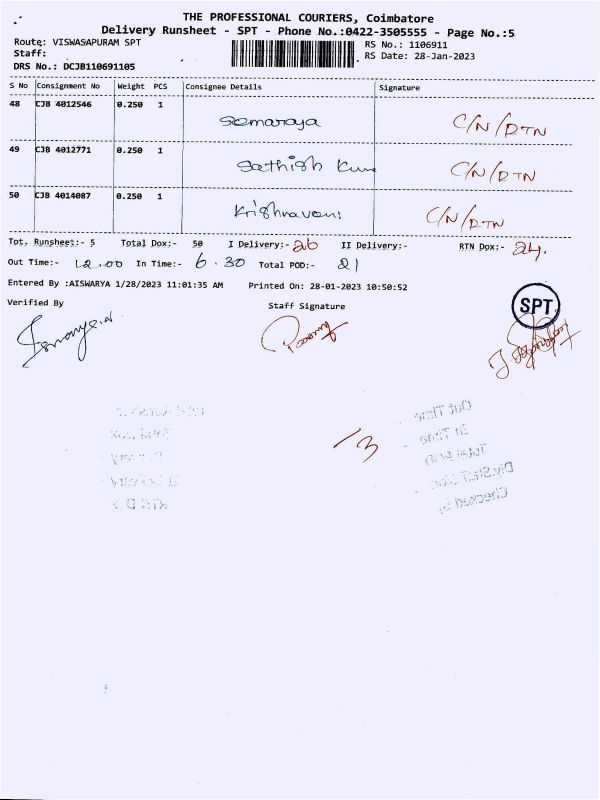 THE PROFESSIONAL COURIERS, Coimbatore
Delivery Runsheet - SPT - Phone No.:0422-3505555 - Page No.:5
Route: VISWASAPURAM SPT
RS No.: 1106911
Staff:
RS Date: 28-Jan-2023
DRS No.: DCJB110691105
S No Consignment No Weight PCS Consignee Details Signature
48 CJB 4012546 0.250 1 Somaraya C/N/RTN
49 CJB 4012771 0.250 1 Sathish Kum C/N/RTN
50 CJB 4014087 0.250 1 Krishnaveni C/N/RTN
Tot. Runsheet:- 5 Total Dox:- 50 I Delivery:- 26 II Delivery:- RTN Dox:- 24.
Out Time:- 12.00 In Time:- 6.30 Total POD:- 21
Entered By :AISWARYA 1/28/2023 11:01:35 AM Printed On: 28-01-2023 10:50:52
Verified By Staff Signature
SPT
Out Time
In Time
Total POD
Checked by